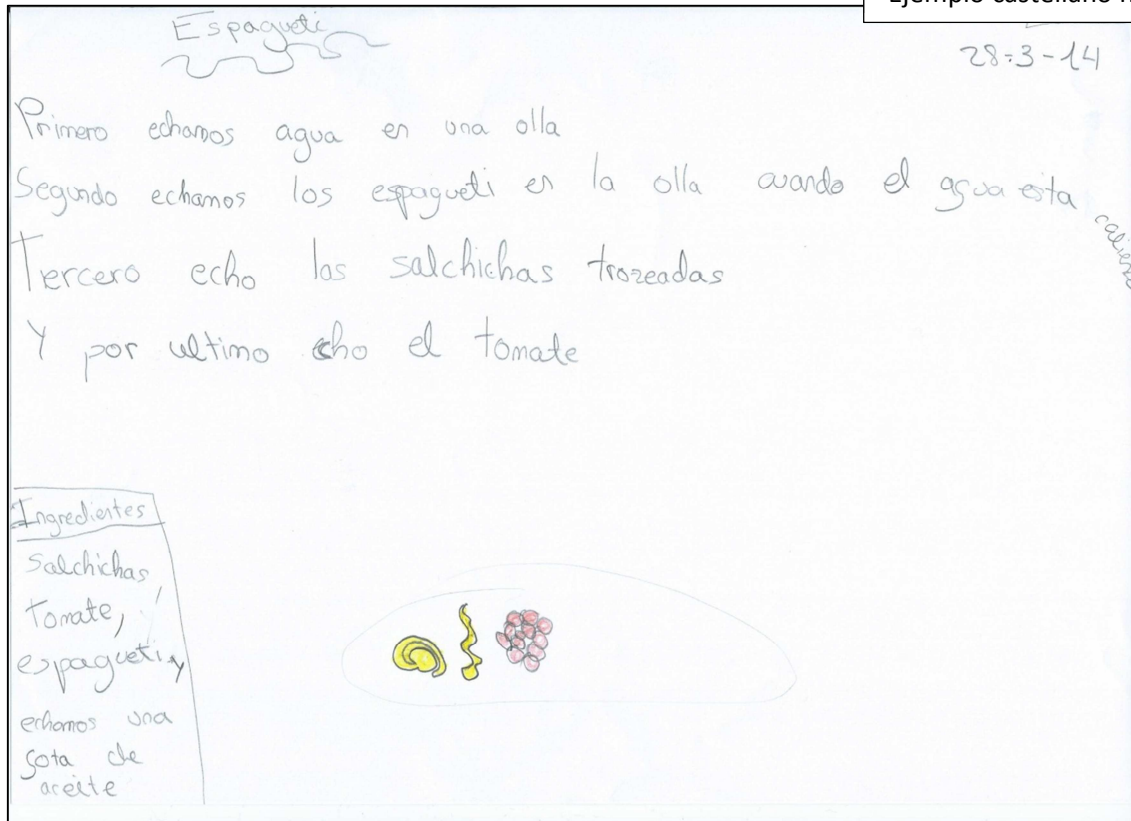 Ejemplo castellano
Espagueti
28-3-14
Primero echamos agua en una olla
Segundo echamos los espagueti en la olla cuando el agua esta caliente
Tercero echo las salchichas trozeadas
Y por ultimo echo el tomate
Ingredientes
Salchichas,
tomate,
espagueti y
echamos una
gota de
aceite